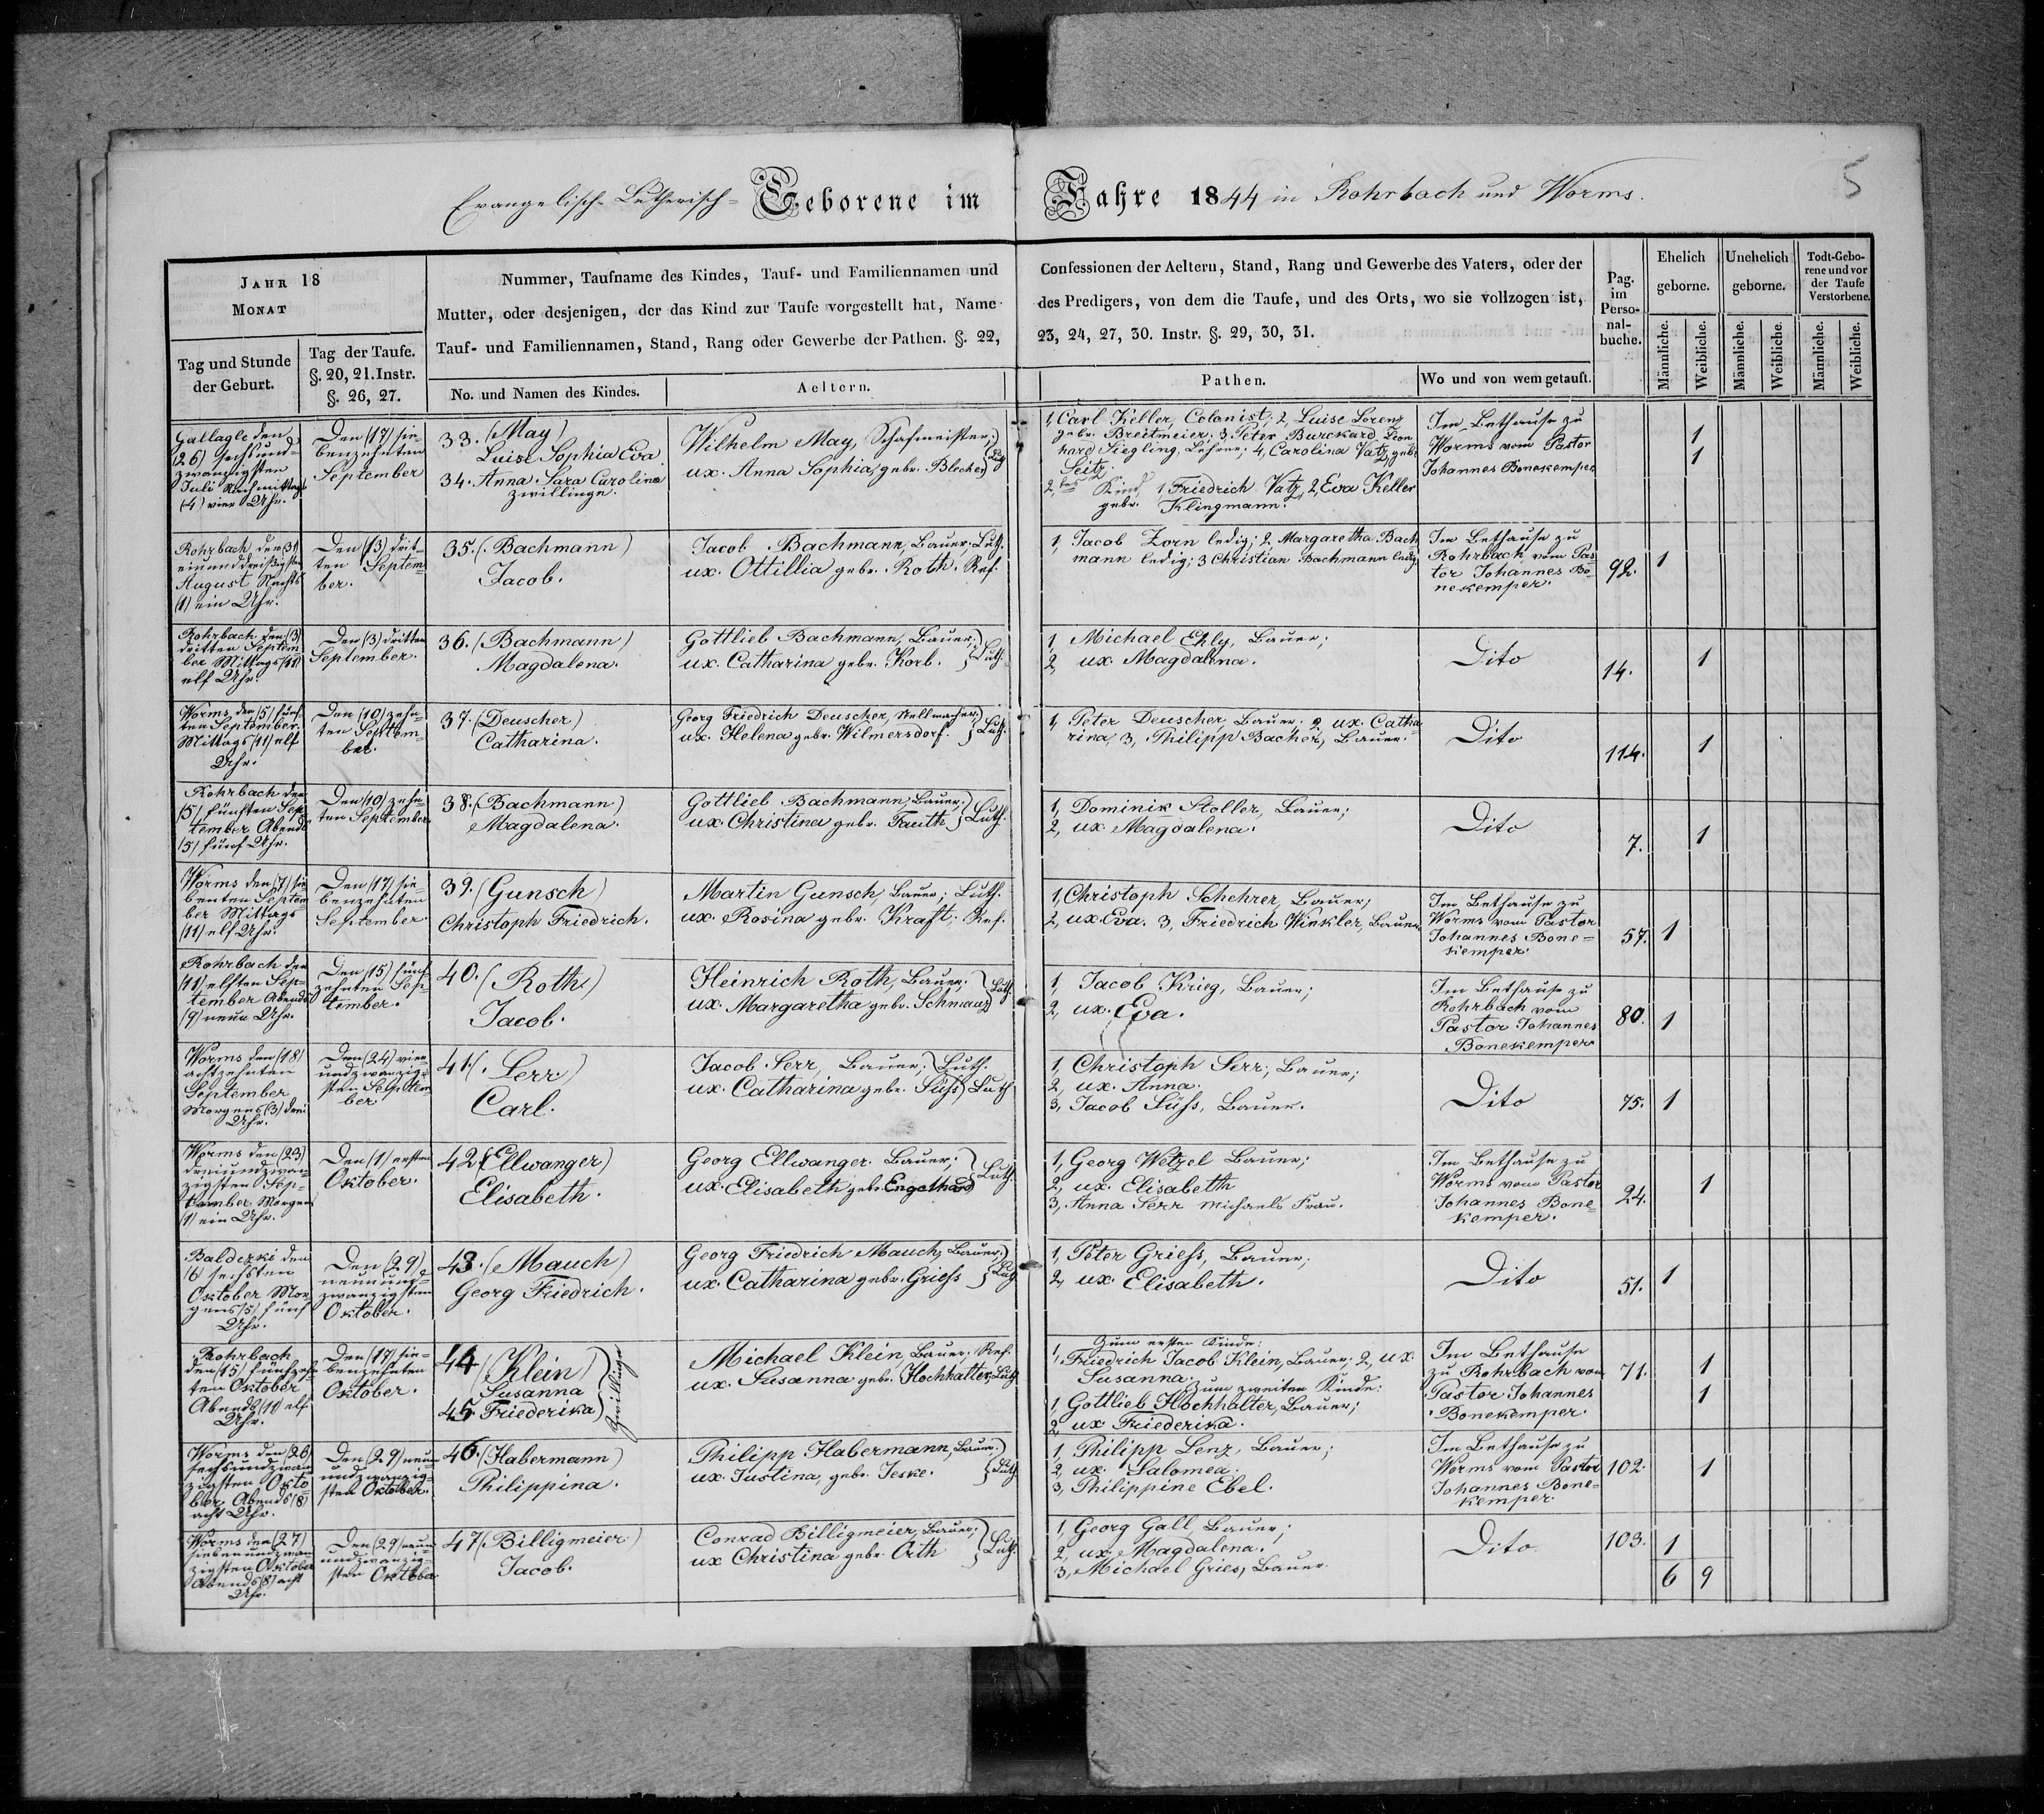 Evangelisch-Lutherisch- Geborene im Jahre 1844 in Rohrbach und Worms.
5
JAHR 18
MONAT
Tag und Stunde
der Geburt.
Tag der Taufe.
§. 20, 21. Instr.
§. 26, 27.
Nummer, Taufname des Kindes, Tauf- und Familiennamen und
Mutter, oder desjenigen, der das Kind zur Taufe vorgestellt hat, Name
Tauf- und Familiennamen, Stand, Rang oder Gewerbe der Pathen. §. 22,
No. und Namen des Kindes.
Aeltern.
Confessionen der Aeltern, Stand, Rang und Gewerbe des Vaters, oder der
des Predigers, von dem die Taufe, und des Orts, wo sie vollzogen ist,
23, 24, 27, 30. Instr. §. 29, 30, 31.
Pathen.
Wo und von wem getauft.
Pag.
im
Perso-
nal-
buche.
Ehelich
geborne.
Unehelich
geborne.
Todt-Gebo-
rene und vor
der Taufe
Verstorbene.
Männliche.
Weibliche.
Männliche.
Weibliche.
Männliche.
Weibliche.
Gallagle den
(26) sechsund-
zwanzigsten
Juli Nachmittags
(4) vier Uhr.
Den (17) sie-
benzehnten
September
33. (May)
Luise Sophia Eva
34. Anna Sara Carolina
zwillinge.
Wilhelm May, Schafmeister;
ux. Anna Sophia, gebr. Blecher
1, Carl Keller, Colonist; 2, Luise Lorenz
gebr. Breitmeier; 3, Peter Burckard Leon
hard Siegling, Lehrer; 4, Carolina Vatz, geb.
Seitz.
2tes Kind, 1, Friedrich Vatz, 2, Eva Keller
gebr. Klingmann.
Im Bethause zu
Worms vom Pastor
Johannes Bonekemper
1
1
Rohrbach, den (31)
einunddreißigsten
August Nachts
(1) ein Uhr.
Den (3) drit-
ten Septem-
ber.
35. (Bachmann)
Jacob.
Jacob Bachmann, Bauer; Luth.
ux. Ottillia gebr. Roth. Ref.
1, Jacob Zorn ledig; 2, Margaretha Bach
mann ledig; 3 Christian Bachmann ledig
Im Bethause zu
Rohrbach vom Pas-
tor Johannes Bo-
nekemper.
92.
1
Rohrbach den (3)
dritten Septem
ber Mittags (11)
elf Uhr.
Den (3) dritten
September.
36. (Bachmann)
Magdalena.
Gottlieb Bachmann, Bauer;
ux. Catharina gebr. Korb. } Luth.
1, Michael Ehly, Bauer;
2, ux. Magdalena.
Dito
14.
1
Worms, den (5) fünf
ten September
Mittags (11) elf
Uhr.
Den (10) zehn-
ten Septem-
ber.
37. (Deuscher)
Catharina.
Georg Friedrich Deuscher, Stellmacher;
ux. Helena gebr. Wilmersdorf. } Luth.
1, Peter Deuscher, Bauer; 2, ux. Catha-
rina, 3, Philipp Bacher, Bauer.
Dito
114.
1
Rohrbach den
(5) fünften Sep-
tember Abends
(5) fünf Uhr.
Den (10) zehn-
ten September
38. (Bachmann)
Magdalena.
Gottlieb Bachmann, Bauer;
ux. Christina gebr. Fauth } Luth.
1, Dominik Stoller, Bauer;
2, ux. Magdalena.
Dito
7.
1
Worms den (7) sie
benten Septem
ber Mittags
(11) elf Uhr.
Den (17) sie-
benzehnten
September.
39. (Gunsch)
Christoph Friedrich.
Martin Gunsch, Bauer; Luth.
ux. Rosina gebr. Kraft; Ref.
1, Christoph Schehrer, Bauer;
2, ux. Eva. 3, Friedrich Winkler, Bauer
Im Bethause zu
Worms vom Pastor
Johannes Bone-
kemper.
57.
1
Rohrbach den
(11) elften Sep-
tember Abends
(9) neun Uhr.
Den (15) fünf-
zehnten Sep-
tember.
40. (Roth)
Jacob.
Heinrich Roth, Bauer;
ux. Margaretha gebr. Schmaaz } Luth.
1, Jacob Krieg, Bauer;
2, ux. Eva.
Im Bethause zu
Rohrbach vom
Pastor Johannes
Bonekemper
80.
1
Worms den (18)
achtzehnten
September
Morgens (3) drei
Uhr.
Den (24) vier
undzwanzig-
sten Septem-
ber.
41. (Serr)
Carl.
Jacob Serr, Bauer; Luth.
ux. Catharina gebr. Süß Luth
1, Christoph Serr, Bauer;
2, ux. Anna.
3, Jacob Süß, Bauer.
Dito
75.
1
Worms den (23)
dreiundzwan-
zigsten Sep-
tember Morgens
(1) ein Uhr.
Den (1) ersten
Oktober.
42. (Ellwanger)
Elisabeth.
Georg Ellwanger Bauer;
ux. Elisabeth gebr. Engelhard } Luth.
1, Georg Wetzel Bauer;
2, ux. Elisabeth
3, Anna Serr Michaels Frau.
Im Bethause zu
Worms vom Pastor
Johannes Bone-
kemper.
24.
1
Balderki den
(6) sechsten
Oktober Mor-
gens (5) fünf
Uhr.
Den (29)
neunund-
zwanzigsten
Oktober.
43. (Mauch)
Georg Friedrich.
Georg Friedrich Mauch, Bauer;
ux. Catharina gebr. Grieß } Luth.
1, Peter Grieß, Bauer;
2, ux. Elisabeth.
Dito
51.
1
Rohrbach
den (15) fünfzehn
ten Oktober
Abends (11) elf
Uhr.
Den (17) sie-
benzehnten
Oktober.
44 (Klein)
Susanna
45. Friederika
Zwillinge
Michael Klein, Bauer; Ref.
ux. Susanna gebr. Hochhalter; Luth.
Zum ersten Kinde:
1, Friedrich Jacob Klein, Bauer; 2, ux.
Susanna. Zum zweiten Kinde:
1, Gottlieb Hochhalter, Bauer;
2, ux Friederika.
Im Bethause
zu Rohrbach vom
Pastor Johannes
Bonekemper.
71.
1
1
Worms den (26)
sechsundzwan
zigsten Okto
ber, Abends (8)
acht Uhr.
Den (29) neun
undzwanzig-
sten Oktober.
46. (Habermann)
Philippina.
Philipp Habermann, Bauer;
ux. Justina, gebr. Jeske. } Luth
1, Philipp Lenz, Bauer;
2, ux. Salomea.
3, Philippine Ebel.
Im Bethause zu
Worms vom Pastor
Johannes Bone-
kemper.
102.
1
Worms den (27)
siebenundzwan
zigsten Oktober
Abends (8) acht
Uhr.
Den (29) neun
undzwanzig-
sten Oktober
47 (Billigmeier)
Jacob.
Conrad Billigmeier, Bauer;
ux Christina gebr. Orth } Luth.
1, Georg Gall, Bauer;
2, ux. Magdalena.
3, Michael Gries, Bauer.
Dito
103.
1
6 9